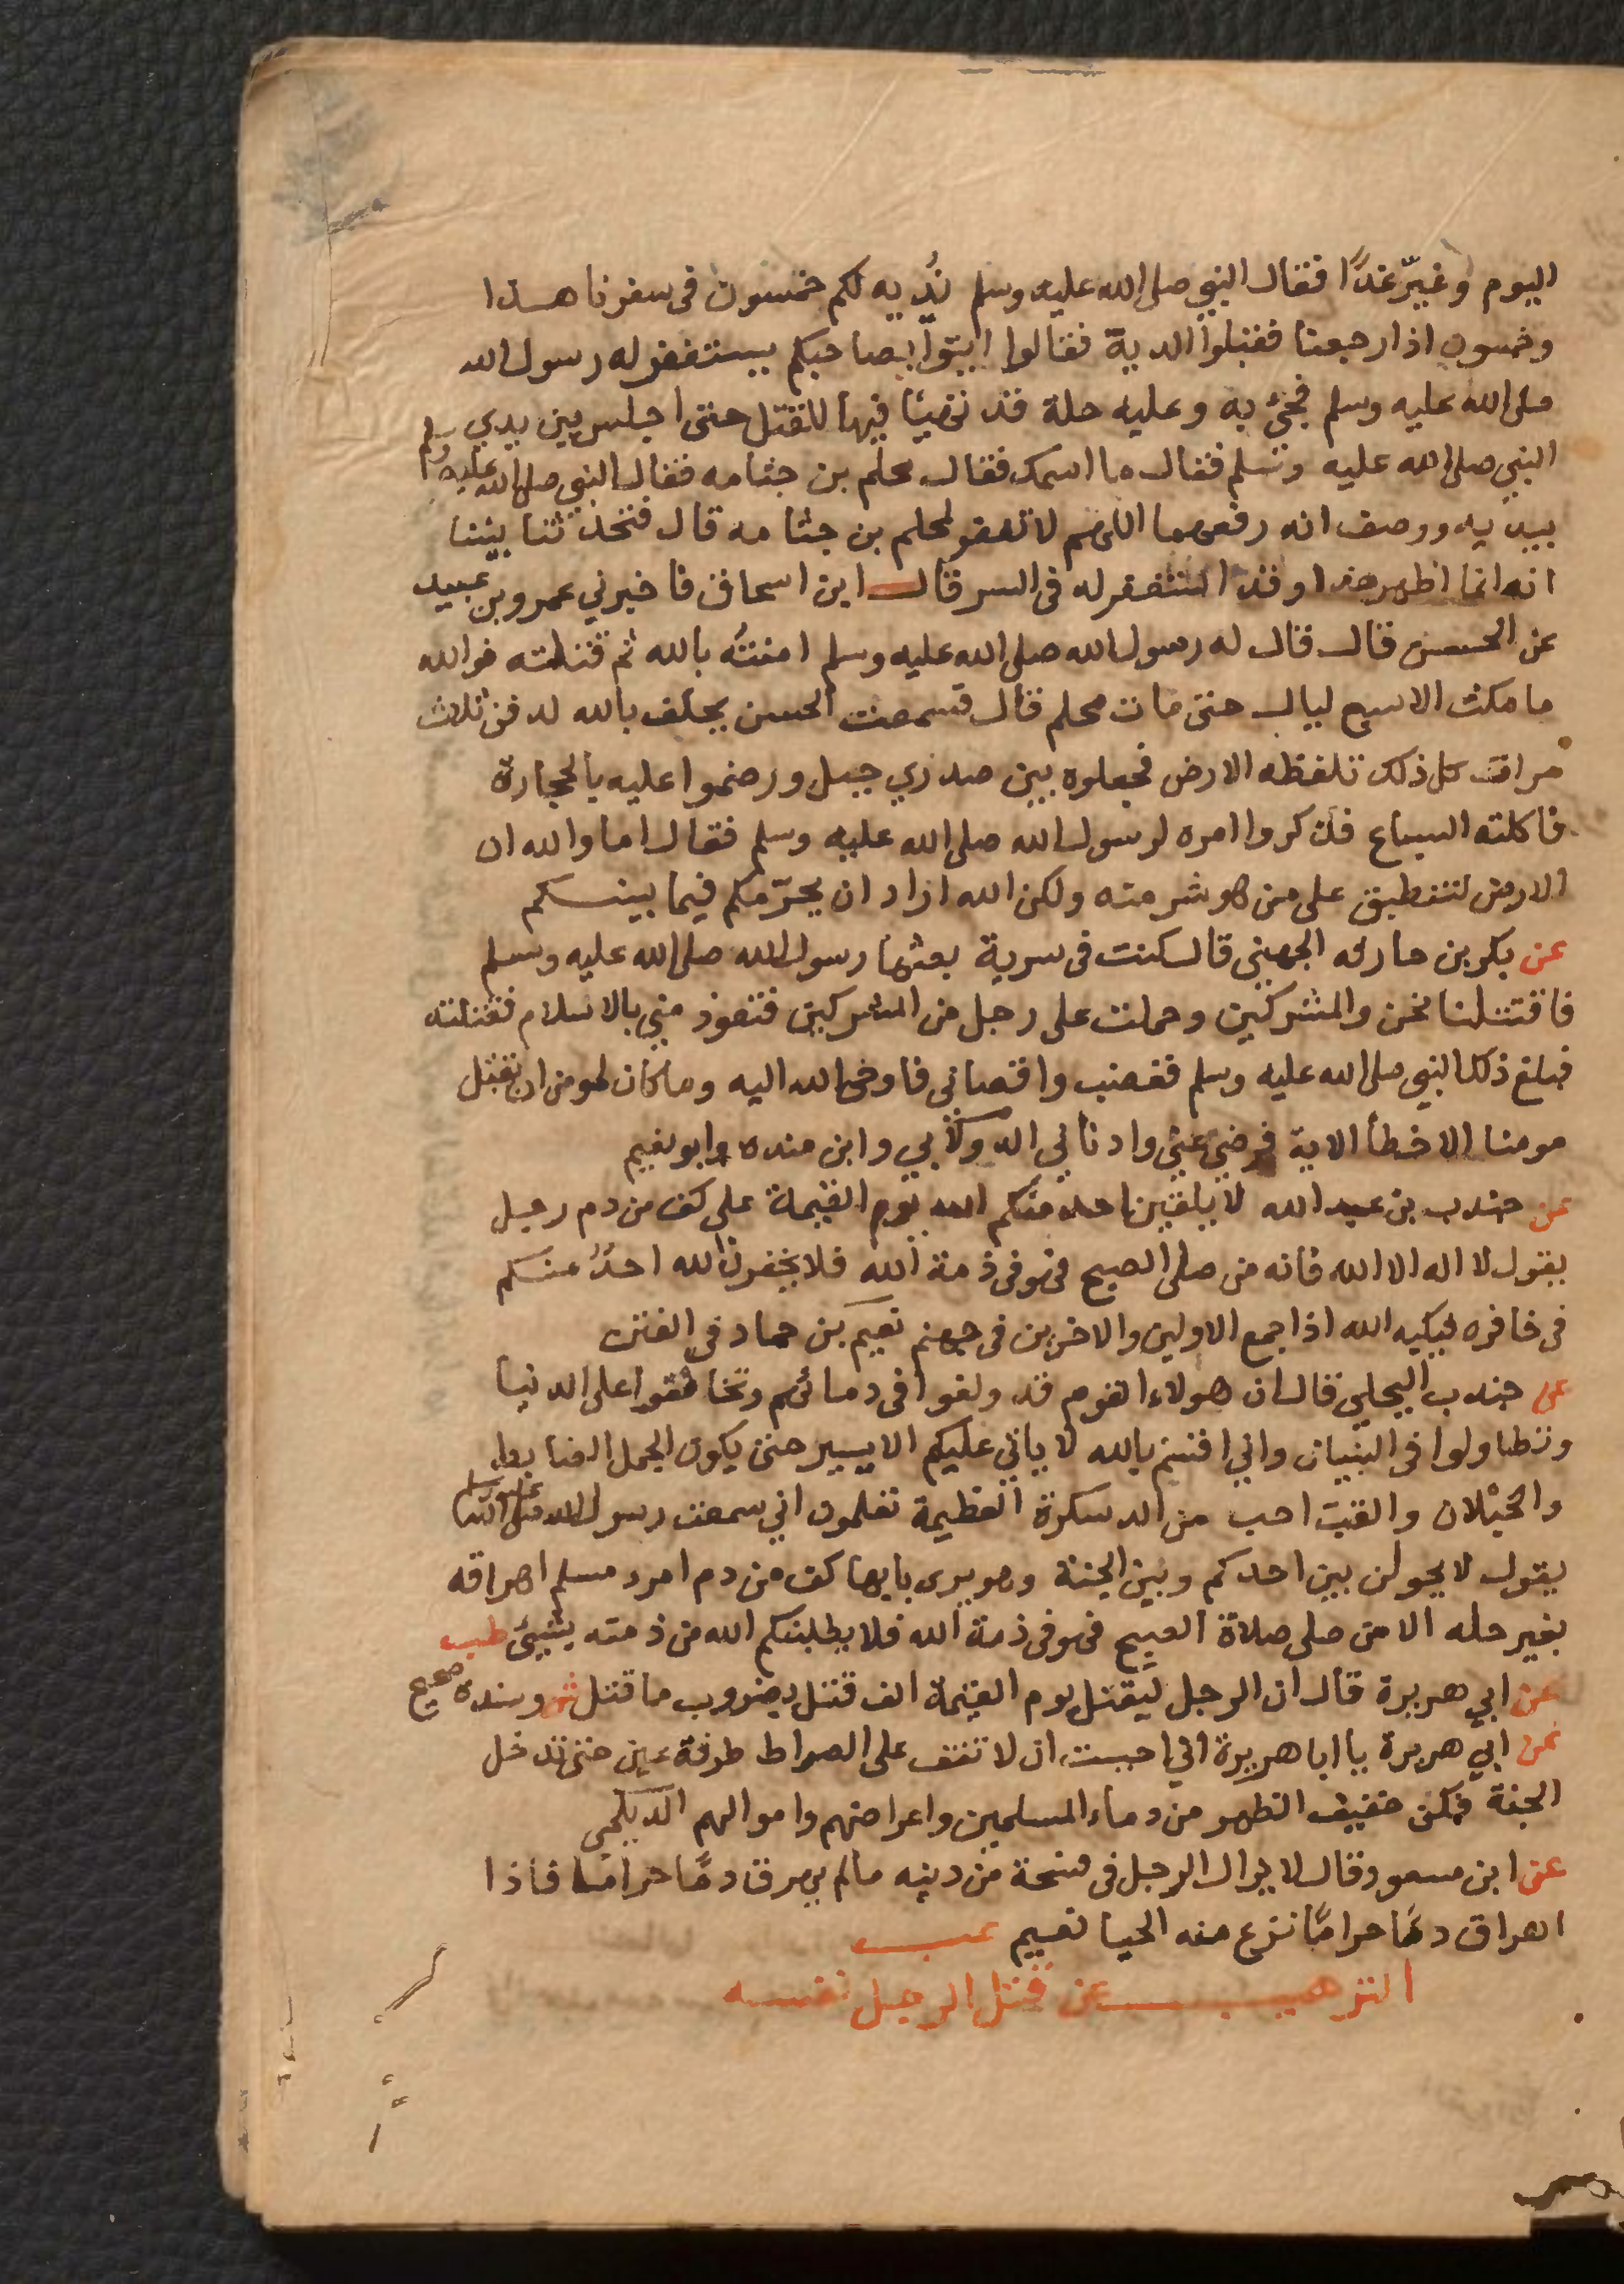 اليوم وغيّر غدًا فقال النبي صلى الله عليه وسلم نُدِيه لكم خمسون في سفرنا هذا
وخمسون اذا رجعنا فقبلوا الدية فقالوا ايتوا بصاحبكم يستغفر له رسول الله
صلى الله عليه وسلم فجئ به وعليه حلة قد تهيئا فيها للقتل حتى اجلس بين يدي
النبي صلى الله عليه وسلم فقال ما اسمك فقال محلم بن جثامه فقال النبي صلى الله عليه وسلم
بيديه ووصف انه رفعهما اللهم لا تغفر لمحلم بن جثامه قال فتحدثنا بيننا
انه انما اظهر هذا وقد استغفر له في السر قال ابن اسحاق فاخبرني عمرو بن عبيد
عن الحسن قال قال له رسول الله صلى الله عليه وسلم امنتُه بالله ثم قتلته فوالله
ما مكث الا سبع ليال حتى مات محلم قال فسمعت الحسن يحلف بالله لدفن ثلاث
مرات كل ذلك تلفظه الارض فجعلوه بين صدري جبل ورضموا عليه بالحجارة
فاكلته السباع فذكروا امره لرسول الله صلى الله عليه وسلم فقال اما والله ان
الارض لتنطبق على من هو شر منه ولكن الله اراد ان يحرّمكم فيما بينكم
عن بكر بن حارثه الجهني قال كنت في سرية بعثها رسول الله صلى الله عليه وسلم
فاقتتلنا نحن والمشركين وحملت على رجل من المشركين فتعوذ مني بالاسلام فقتلته
فبلغ ذلك النبي صلى الله عليه وسلم فغضب واقصاني فاوحى الله اليه وما كان لمومن ان يقتل
مومنا الا خطأ الاية فرضي عني وادناني الدولابي وابن منده وابو نعيم
عن جندب بن عبد الله لا يلقين احد منكم الله يوم القيمة على كف من دم رجل
يقول لا اله الا الله فانه من صلى الصبح فهو في ذمة الله فلا يخفرن الله احدٌ منكم
في خافره فيكبه الله اذا جمع الاولين والاخرين في جهنم نعيم بن حماد في الفتن
عن جندب البجلي قال ان هولاء القوم قد ولغوا في دمائهم وتحالفوا على الدنيا
وتطاولوا في البنيان واني اقسم بالله لا ياتي عليكم الا يسير حتى يكون الجمل الضابط
والحبلان والقتب احب من الدسكرة العظيمة تعلمون اني سمعت رسول الله صلى الله عليه وسلم
يقول لا يحولن بين احدكم وبين الجنة وهو يرى بابها كف من دم امرء مسلم اهراقه
بغير حله الا من صلى صلاة الصبح فهو في ذمة الله فلا يطلبنكم الله من ذمته بشيئ طب
عن ابي هريرة قال ان الرجل ليقتل يوم القيمة الف قتل بضروب ما قتل ش وسنده صحيح
عن ابي هريرة يا ابا هريرة اني احببت ان لا تقف على الصراط طرفة عين حتى تدخل
الجنة فكن خفيف الظهر من دماء المسلمين واعراضهم واموالهم الديلمي
عن ابن مسعود قال لا يزال الرجل في فسحة من دينه ما لم يهرق دمًا حرامًا فاذا
اهراق دمًا حرامًا نزع منه الحيا نعيم عب
الترهيب عن قتل الرجل نفسه